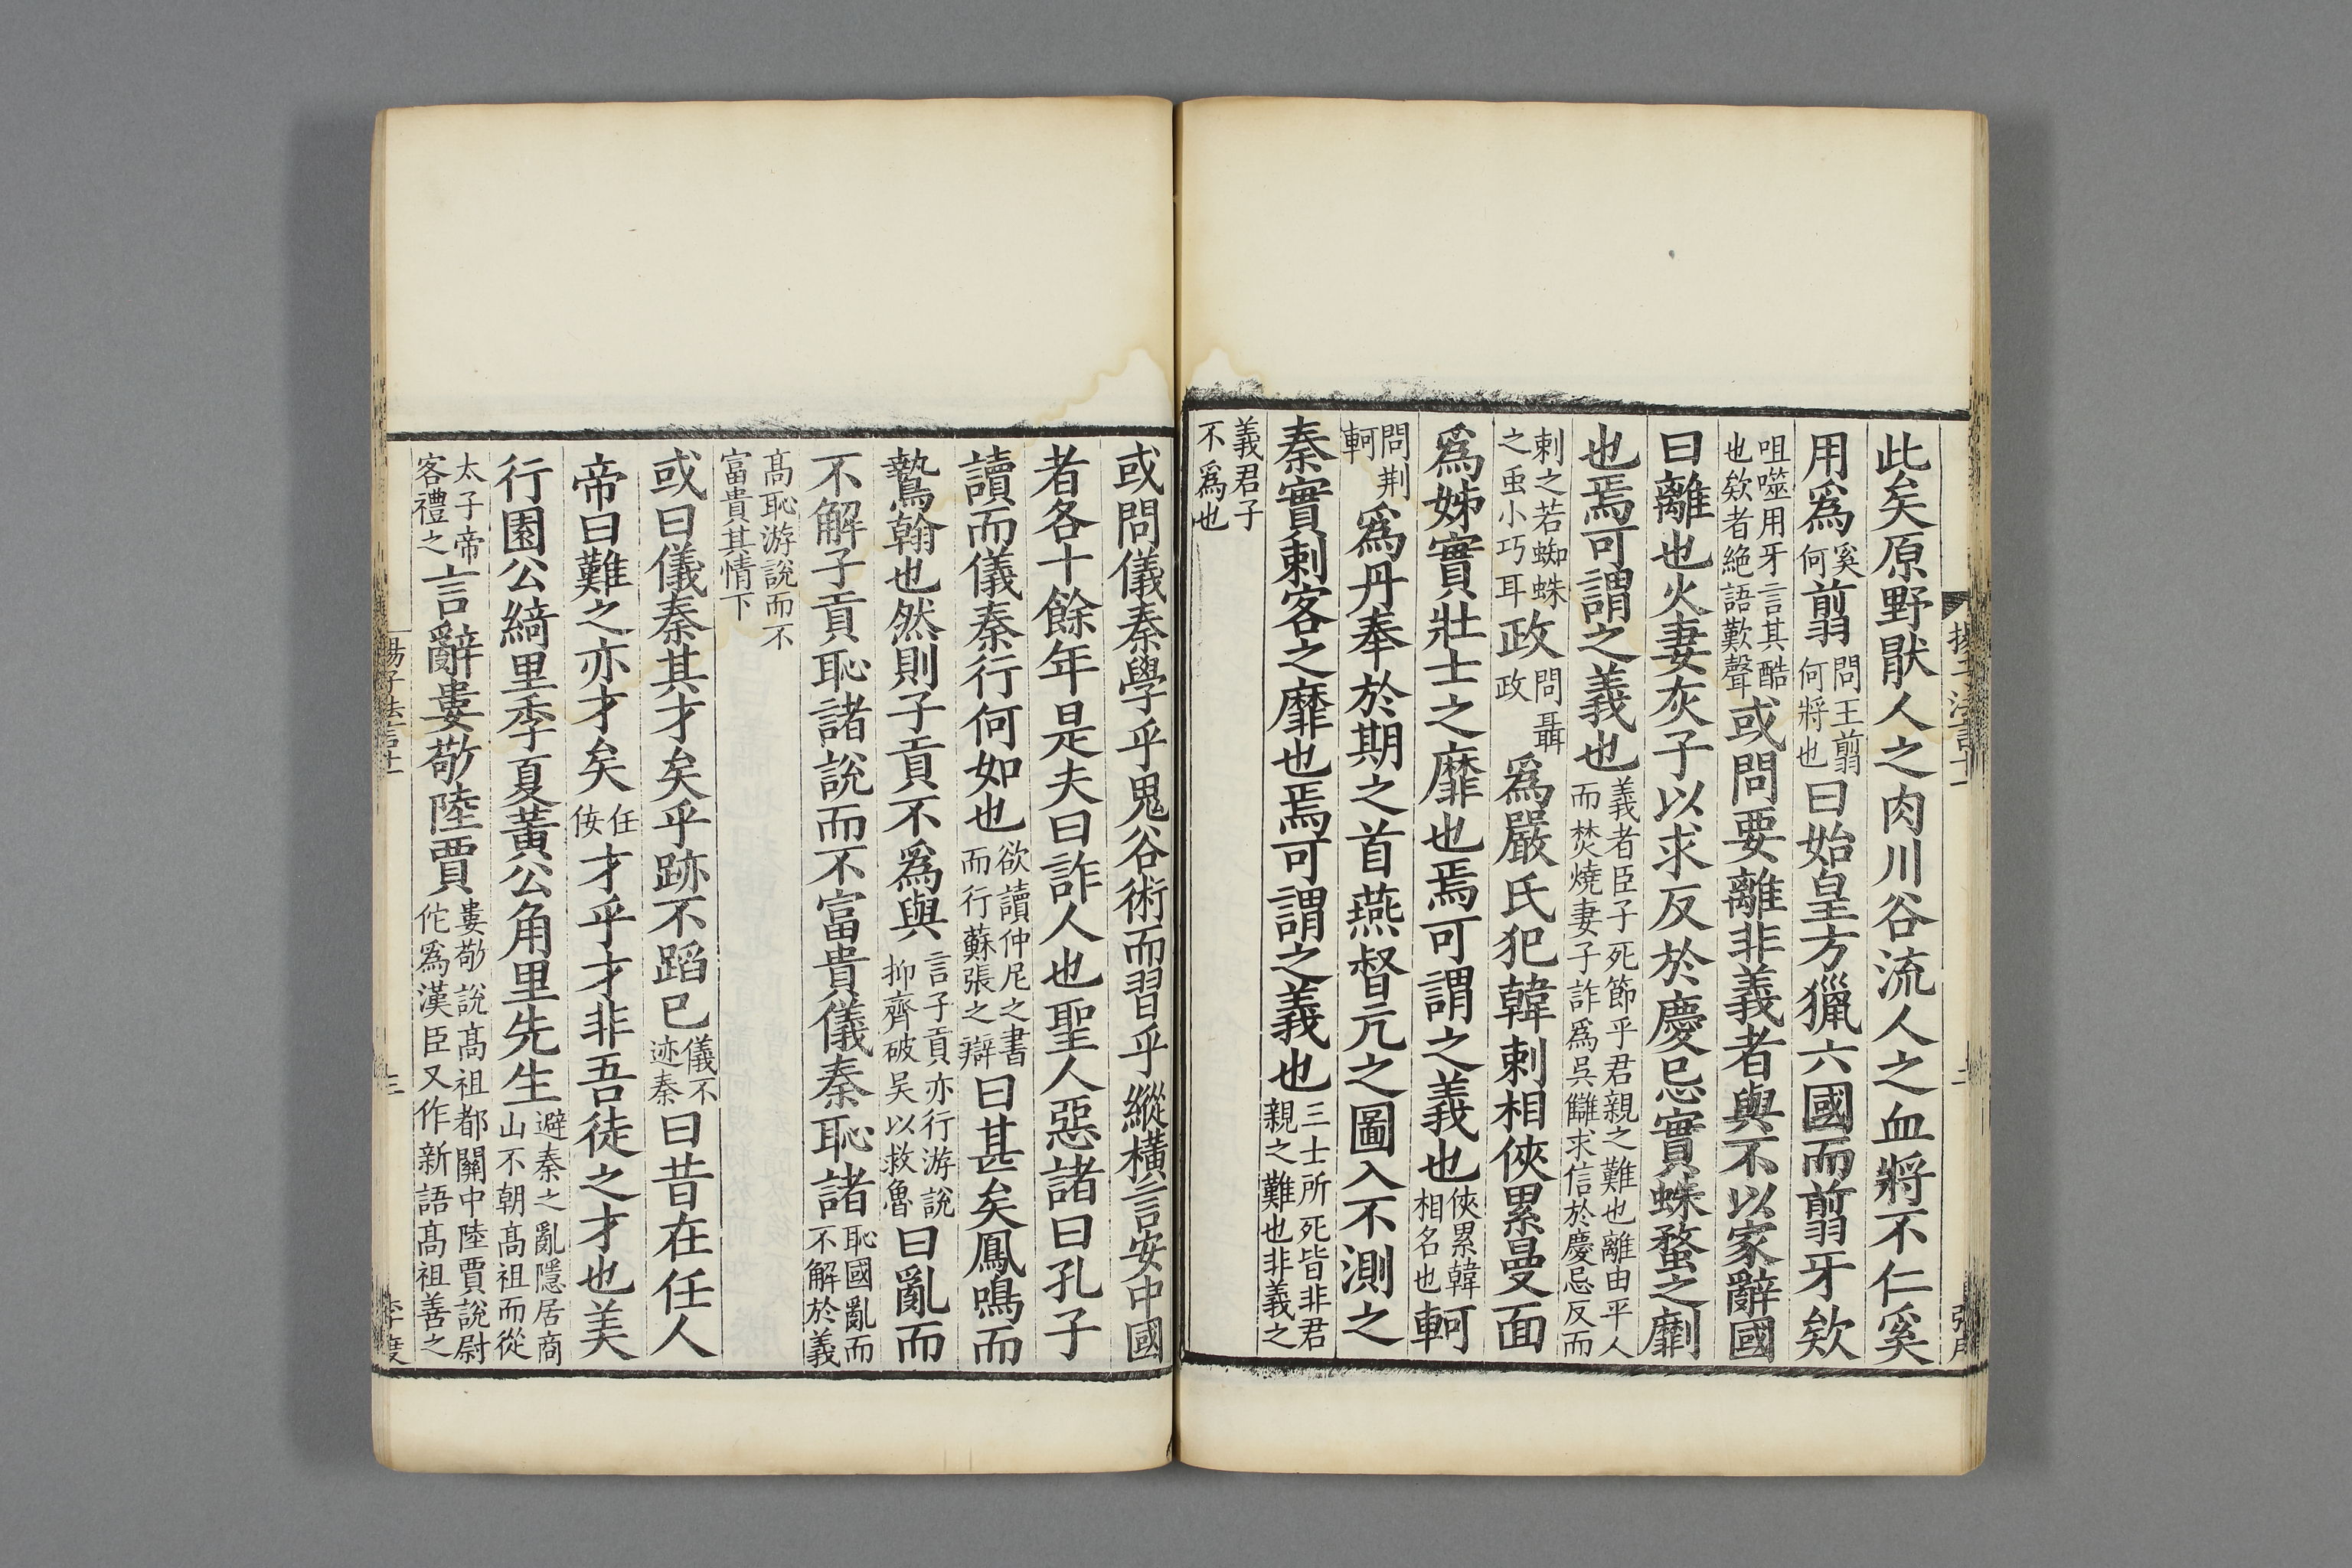 此矣原野猒人之肉川谷流人之血將不仁奚
用爲奚何翦問王翦何將也曰始皇方獵六國而翦牙欸
咀噬用牙言其酷也欸者絶語歎聲或問要離非義者與不以家辭國
曰離也火妻灰子以求反於慶忌實蛛蝥之劘
也焉可謂之義也義者臣子死節乎君親之難也離由平人而焚燒妻子詐爲吳讎求信於慶忌反而
刺之若蜘蛛之虫小巧耳政問聶政爲嚴氏犯韓刺相俠累曼面
爲姊實壯士之靡也焉可謂之義也俠累韓相名也軻
問荆軻爲丹奉於期之首燕督亢之圖入不測之
秦實刺客之靡也焉可謂之義也三士所死皆非君親之難也非義之
義君子不爲也
或問儀秦學乎鬼谷術而習乎縱橫言安中國
者各十餘年是夫曰詐人也聖人惡諸曰孔子
讀而儀秦行何如也欲讀仲尼之書而行蘇張之辯曰甚矣鳳鳴而
鷙翰也然則子貢不爲與言子貢亦行游說抑齊破吳以救魯曰亂而
不解子貢恥諸說而不富貴儀秦恥諸恥國亂而不解於義
髙恥游說而不富貴其情下
或曰儀秦其才矣乎跡不蹈已儀不迹秦曰昔在任人
帝曰難之亦才矣任佞才乎才非吾徒之才也美
行園公綺里季夏黃公角里先生避秦之亂隱居商山不朝髙祖而從
太子帝客禮之言辭婁敬陸賈婁敬說髙祖都關中陸賈說尉佗爲漢臣又作新語髙祖善之
揚子法言十一
三
李度